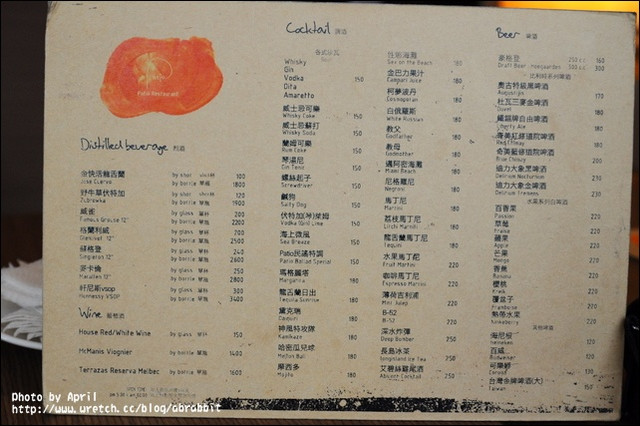 Patio Restaurant
Distilled beverage 烈酒
金快活龍舌蘭 by shot 100
Jose Cuervo by bottle 單瓶 1800
野牛草伏特加 by shot 120
Zubrowka by bottle 單瓶 1900
威雀 by glass 單杯 200
Famous Grouse 12" by bottle 單瓶 2200
格蘭利威 by glass 單杯 200
Glenlivet 12" by bottle 單瓶 2500
蘇格登 by glass 單杯 240
Singleton 12" by bottle 單瓶 2600
麥卡倫 by glass 單杯 250
Macallen 12" by bottle 單瓶 2800
軒尼斯VSOP by glass 單杯 300
Hennessy VSOP by bottle 單瓶 3400
Wine 葡萄酒
House Red/White Wine by glass 單杯 150
McManis Viognier by bottle 單瓶 1400
Terrazas Reserva Malbec by bottle 單瓶 1600
Cocktail 調酒
Whisky
Gin
Vodka 150
Dita
Amaretto
威士忌可樂
Whisky Coke 150
威士忌蘇打
Whisky Soda 150
蘭姆可樂
Rum Coke 150
琴湯尼
Gin Tonic 150
螺絲起子
Screwdriver 150
鹹狗
Salty Dog 150
伏特加(琴)萊姆
Vodka (Gin) Lime 150
海上微風
Sea Breeze 150
Patio民謠特調
Patio Ballad Special 150
瑪格麗塔
Margarita 180
龍舌蘭日出
Tequila Sunrise 180
黛克瑞
Daiquiri 180
神風特攻隊
Kamikaze 180
哈密瓜兒球
Mellon Ball 180
摩西多
Mojito 180
性慾海灘
Sex on the Beach 180
金巴力果汁
Campari Juice 180
柯夢波丹
Cosmopolitan 180
白俄羅斯
White Russian 180
教父
Godfather 180
教母
Godmother 180
邁阿密海灘
Miami Beach 180
尼格羅尼
Negroni 180
馬丁尼
Martini 180
荔枝馬丁尼
Litchi Martini 180
龍舌蘭馬丁尼
Tequini 180
水果馬丁尼
Fruit Martini 220
咖啡馬丁尼
Espresso Martini 220
薄荷吉利浦
Mint Julep 220
B-52
B-52 220
深水炸彈
Deep Bomber 250
長島冰茶
Longisland Ice Tea 250
艾碧絲雞尾酒
Absient Cocktail 250
Beer 啤酒
豪格登 250 c.c 160
Draft Beer - Hoegaarden 500 c.c 300
比利時系列啤酒
奧古特級黑啤酒
Augustijn 170
杜瓦三麥金啤酒
Duvel 180
鐵錨牌自由啤酒
Liberty Ale 180
奇美紅修道院啤酒
Red Chimay 180
奇美藍修道院啤酒
Blue Chimay 200
迪力大象黑啤酒
Delirium Nocturnum 230
迪力大象金啤酒
Delirium Tremens 230
水果系列白啤酒
百香果
Passion 220
草莓
Fraise 220
蘋果
Apple 220
芒果
Mango 220
香蕉
Banana 220
櫻桃
Kriek 220
覆盆子
Framboise 220
熱帶水果
Honeberry 220
其他啤酒
海尼根
Heineken 120
百威
Budweiser 120
可樂娜
Corona 150
台灣金牌啤酒(大)
Taiwan 150
Photo by April
http://www.wretch.cc/blog/abrabbit